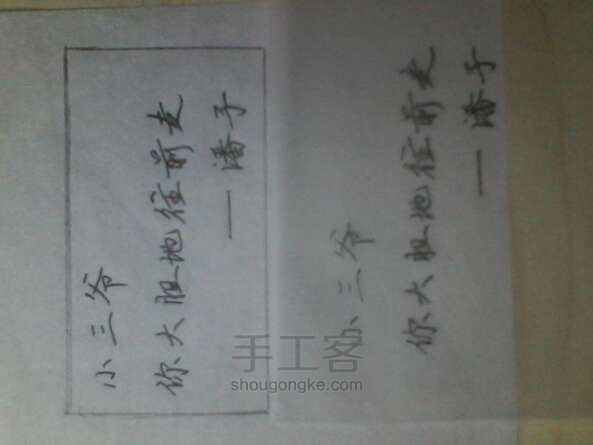 小三爷
你大胆地往前走
—潘子
小三爷
你大胆地往前走
—潘子
手工客
shougongke.com